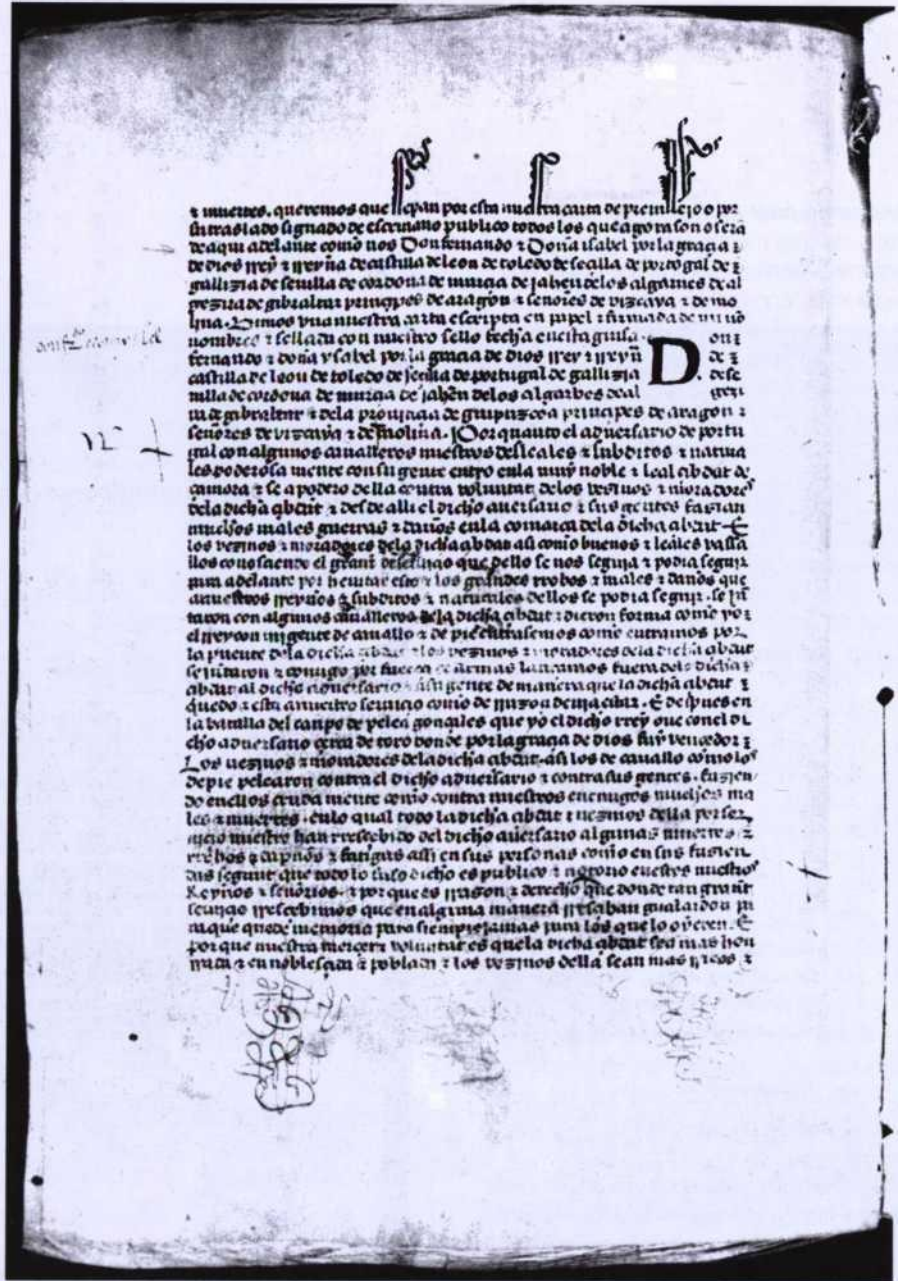 τ muertes. queremos que sepan por esta nuestra carta de preuillejo o por
su traslado signado de escriuano publico todos los que agora son o serã
de aqui adelante como nos Don fernando τ Doña isabel por la graçia τ
de dios rrey τ rreyña de castilla de leon de toledo de seçilia de portogal de τ
gallizia de seuilla de cordoua de murçia de jahen delos algarues de al
gezira de gibraltar prinçipes de aragon τ señores de vizcaya τ de mo
lina. Vimos vna nuestra carta escripta en papel τ firmada de nrõs
nombres τ sellada con nuestro sello fecha enesta guisa. Don τ
fernando τ doña ysabel por la graçia de dios rrey τ rreyñ de τ
castilla de leon de toledo de seçilia de portugal de gallizia de se
uilla de cordoua de murçia de jahen delos algarbes de al gezi
ra de gibraltar τ dela prouinçia de guipuzcoa prinçipes de aragon τ
señores de vizcaya τ de molina. Por quanto el aduersario de portu
gal con algunos caualleros nuestros desleales τ subditos τ natura
les poderosa mente con su gente entro enla muy noble τ leal çibdat de
çamora τ se apodero della contra voluntat delos vezinos τ moradores
dela dicha çibdat τ desde alli el dicho auersario τ sus gentes fazian
muchos males guerras τ daños enla comarca dela dicha çibdat E
los vezinos τ moradores dela dicha çibdat asi como buenos τ leales vasa
llos consçiendo el grant deseruiçio que dello se nos seguia τ podia seguir
mas adelante por heuitar esto τ los grandes rrobos τ males τ daños que
a nuestros rreyños τ subditos τ naturales dellos se podia seguir. se jũ
taron con algunos caualleros dela dicha çibdat τ dieron forma como yo τ
el rrey con mi gente de cauallo τ de pie entrasemos como entramos por
la puente dela dicha çibdat τ los vezinos τ moradores dela dicha çibdat
se juntaron τ comigo por fuerça de armas lançamos fuera dela dicha τ
çibdat al dicho aduersario τ a su gente de manera que la dicha çibdat τ
quedo τ esta a nuestro seruiçio como de rrazon deuia estar. E despues en
la batalla del campo de pelea gonçales que yo el dicho rrey oue conel di
cho aduersario çerca de toro donde por la graçia de dios fuy vençedor τ
Los uezinos τ moradores dela dicha çibdat. asi los de cauallo como los
de pie pelearon contra el dicho aduersario τ contra sus gentes. fazien
do enellos cruda mente como contra nuestros enemigos muchos ma
les τ muertes. enlo qual todo la dicha çibdat τ uezinos della por ser
uiçio nuestro han rresçebido del dicho auersario algunas muertes τ
rrobos τ daños τ fatigas assi en sus personas como en sus fazien
das segunt que todo lo suso dicho es publico τ notorio enestos nuestros
Reyños τ señorios. τ porque es rrazon τ derecho que donde tan grant
seruiçio rresçebimos que en alguna manera rresçiban gualardon pa
ra que quede memoria para siempre jamas para los que lo oyeren. E
por que nuestra merçet τ voluntat es que la dicha çibdat sea mas hon
rrada τ en noblesçida τ poblada τ los vezinos della sean mas rricos τ